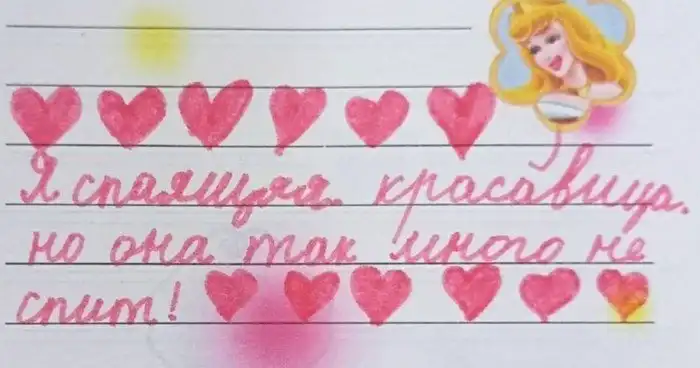 Я спаящяя. красавица.
но она так много не
спит!